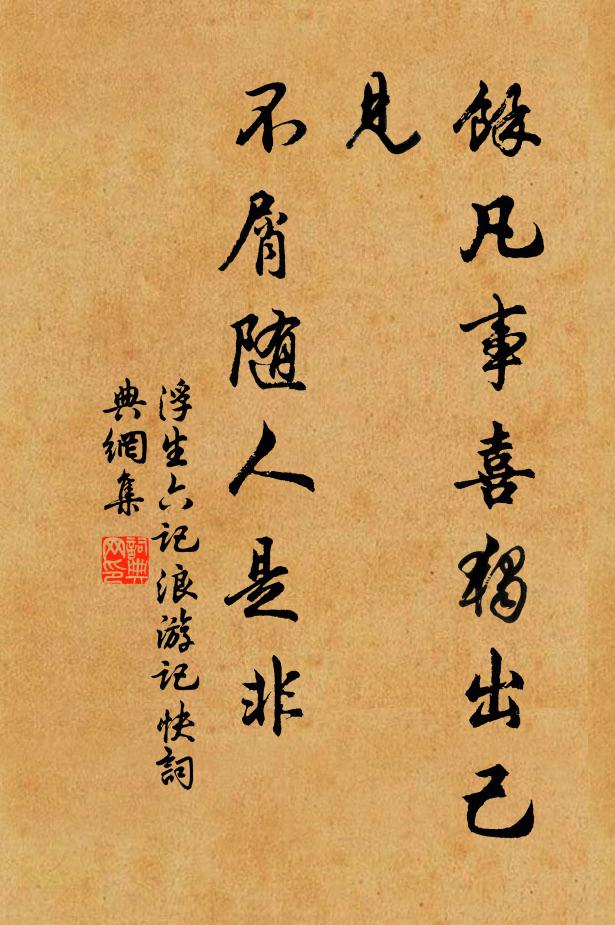 餘凡事喜獨出己
見
不屑随人是非
浮生六记浪游记快詞
典網集
詞典
网印